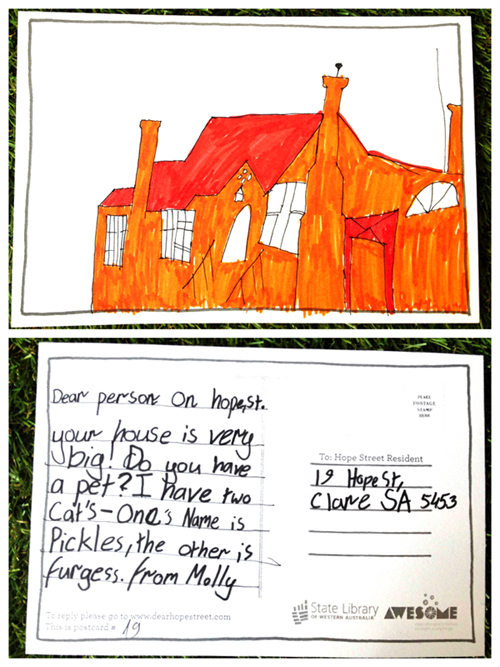 Dear person on hope,st.
your house is very
big! Do you have
a pet? I have two
Cat's - One's Name is
Pickles, the other is
furgess. from Molly
To reply please go to www.dearhopestreet.com
This is postcard # 19
PLACE
POSTAGE
STAMP
HERE
To: Hope Street Resident
19 Hope St,
Clare SA 5453
State Library
OF WESTERN AUSTRALIA
AWESOME